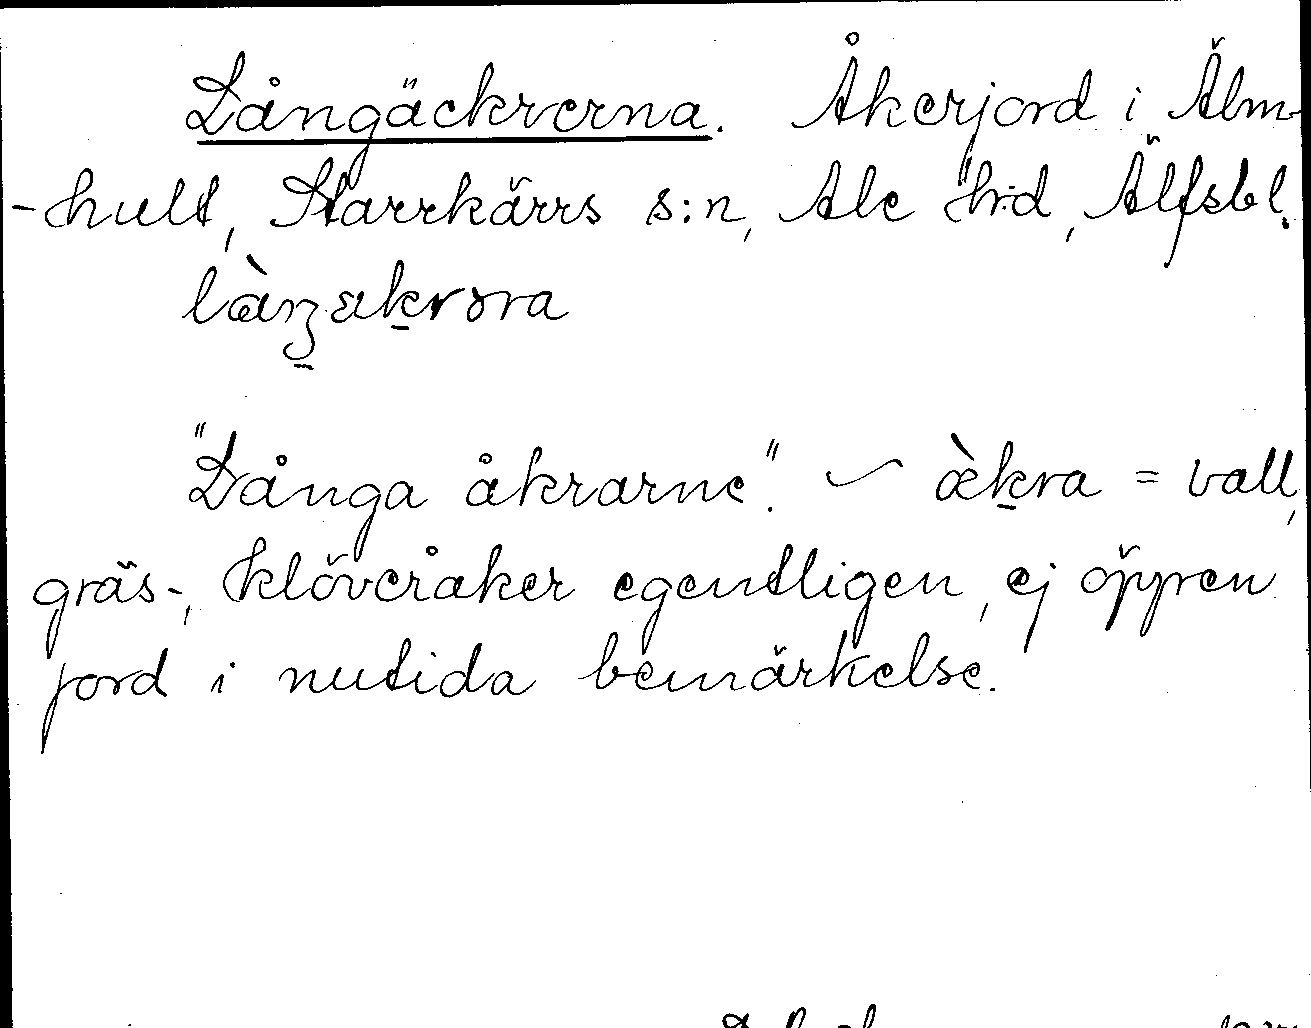 Långäckrerna. Åkerjord i Älm-
-hult, Starrkärrs s:n, Ale h:d, Älfsbl.
làŋækrəra
"Långa åkrarne". ~ æ̀kra = vall,
gräs-, klöveråker egentligen, ej öppen
jord i nutida bemärkelse.